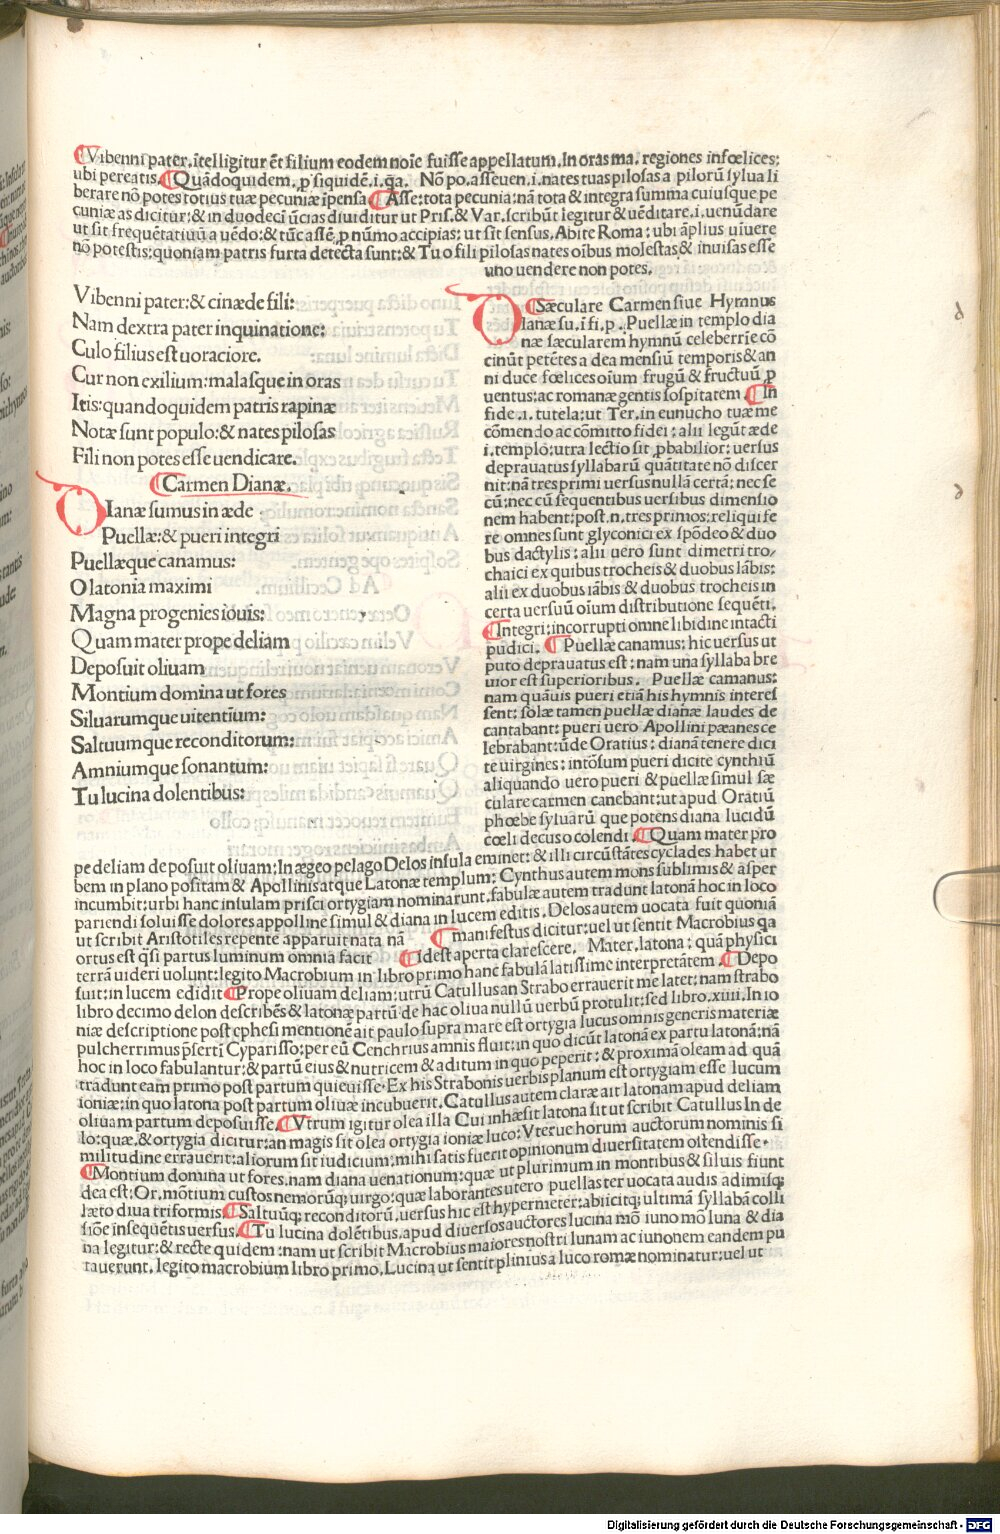 Vibenni pater.ītelligitur ēt filium eodem noīe fuisse appellatum.In oras ma. regiones infœlices:
ubi pereatis.Quādoquidem.p siquidē.i.q̄a. Nō po.asse uen.i.nates tuas pilosas a pilorū sylua li
berare nō potes totius tuæ pecuniæ īpensa Asse:tota pecunia:nā tota & integra summa cuiusque pe
cuniæ as dicitur:& in duodecī ūcias diuiditur ut Pris.& Var.scribūt legitur & uēditare.i.uenūdare
ut sit frequētatiuū a uēdo:& tūc assē p nūmo accipias:ut sit sensus.Abite Roma:ubi āplius uiuere
nō potestis:quoniam patris furta detecta sunt:& Tu o fili pilosas nates oībus molestas & inuisas esse
uno uendere non potes.
Vibenni pater:& cinæde fili:
Nam dextra pater inquinatione:
Culo filius est uoraciore.
Cur non exilium:malasque in oras
Itis:quandoquidem patris rapinæ
Notæ sunt populo:& nates pilosas
Fili non potes esse uendicare.
Carmen Dianæ.
DIanæ sumus in æde
Puellæ:& pueri integri
Puellæque canamus:
O latonia maximi
Magna progenies iouis:
Quam mater prope deliam
Deposuit oliuam
Montium domina ut fores
Siluarumque uitentium:
Saltuumque reconditorum:
Amniumque sonantum:
Tu lucina dolentibus:
Sæculare Carmen siue Hymnus
DIanæ su.ī fi.p. Puellæ in templo dia
næ sæcularem hymnū celeberrīe cō
cinūt petētes a dea mensiū temporis & an
ni duce fœlices oīum frugū & fructuū p
uentus:ac romanæ gentis sospitatem In
fide.i.tutela:ut Ter.in eunucho tuæ me
cōmendo ac cōmitto fidei:alii legūt æde
i.templo:utra lectio sit pbabilior:uersus
deprauatus syllabarū quātitate nō discer
nit:nā tres primi uersus nullā certā:nec se
cū:nec cū sequentibus uersibus dimensio
nem habent:post.n.tres primos:reliqui fe
re omnes sunt glyconici ex spōdeo & duo
bus dactylis:alii uero sunt dimetri tro/
chaici ex quibus trocheis & duobus iābis:
alii ex duobus iābis & duobus trocheis in
certa uersuū oīum distributione sequēti.
Integri:incorrupti omne libidine intacti
pudici. Puellæ canamus:hic uersus ut
puto deprauatus est:nam una syllaba bre
uior est superioribus. Puellæ camanus:
nam quāuis pueri etiā his hymnis interes
sent:solæ tamen puellæ dianæ laudes de
cantabant:pueri uero Apollini pæanes ce
lebrabant:ūde Oratius:dianā tenere dici
te uirgines:intōsum pueri dicite cynthiū
aliquando uero pueri & puellæ simul sæ
culare carmen canebant:ut apud Oratiū
phœbe syluarū que potens diana lucidū
cœli decus o colendi. Quam mater pro
pe deliam deposuit oliuam:In ægeo pelago Delos insula eminet:& illi circūstātes cyclades habetur
bem in plano positam & Apollinis atque Latonæ templum:Cynthus autem mons sublimis & asper
incumbit:urbi hanc insulam prisci ortygiam nominarunt.fabulæ autem tradunt latonā hoc in loco
pariendi soluisse dolores appollinē simul & diana in lucem editis.Delos autem uocata fuit quoniā
ut scribit Aristotiles repente apparuit nata nā manifestus dicitur:uel ut sentit Macrobius q̄a
ortus est q̄si partus luminum omnia facit Idest aperta clarescere. Mater.latona:quā physici
terrā uideri uolunt:legito Macrobium in libro primo hanc fabulā latissime interpretātem.Depo
suit:in lucem edidit Prope oliuam deliam:utrū Catullus an Strabo errauerit me latet:nam strabo
libro decimo delon describēs & latonæ partū de hac oliua nullū uerbū protulit:sed libro.xiiii.In io
niæ descriptione post ephesi mentionē ait paulo supra mare est ortygia lucus omnis generis materiæ
pulcherrimus p̄sertī Cyparisso:per eū Cenchrius amnis fluit:in quo dicūt latonā ex partu latonā:nā
hoc in loco fabulantur:& partū eius & nutricem & aditum in quo peperit:& proximā oleam ad quā
tradunt eam primo post partum quieuisse.Ex his Strabonis uerbis planum est ortygiam esse lucum
ioniæ:in quo latona post partum oliuæ incubuerit.Catullus autem claræ ait latonam apud deliam
oliuam partum deposuisse.Vtrum igitur olea illa Cui inhæsit latona sit ut scribit Catullus In de
lo:quæ.& ortygia dicitur:an magis sit olea ortygia ioniæ luco:Vter ue horum auctorum nominis si
militudine errauerit:aliorum sit iudicium:mihi satis fuerit opinionum diuersitatem ostendisse.
Montium domina ut fores.nam diana uenationum:quæ ut plurimum in montibus & siluis fiunt
dea est:Or.mōtium custos nemorūq; uirgo:quæ laborantes utero puellas ter uocata audis adimisq;
læto diua triformis.Saltuūq; reconditorū.uersus hic est hypermeter:abiicitq; ultimā syllabā colli
siōe insequētis uersus.Tu lucina dolētibus.apud diuersos auctores lucina mō iuno mō luna & dia
na legitur:& recte quidem:nam ut scribit Macrobius maiores nostri lunam ac iunonem eandem pu
tauerunt.legito macrobium libro primo.Lucina ut sentit plinius a luco romæ nominatur:uel ut
Digitalisierung gefördert durch die Deutsche Forschungsgemeinschaft - DFG